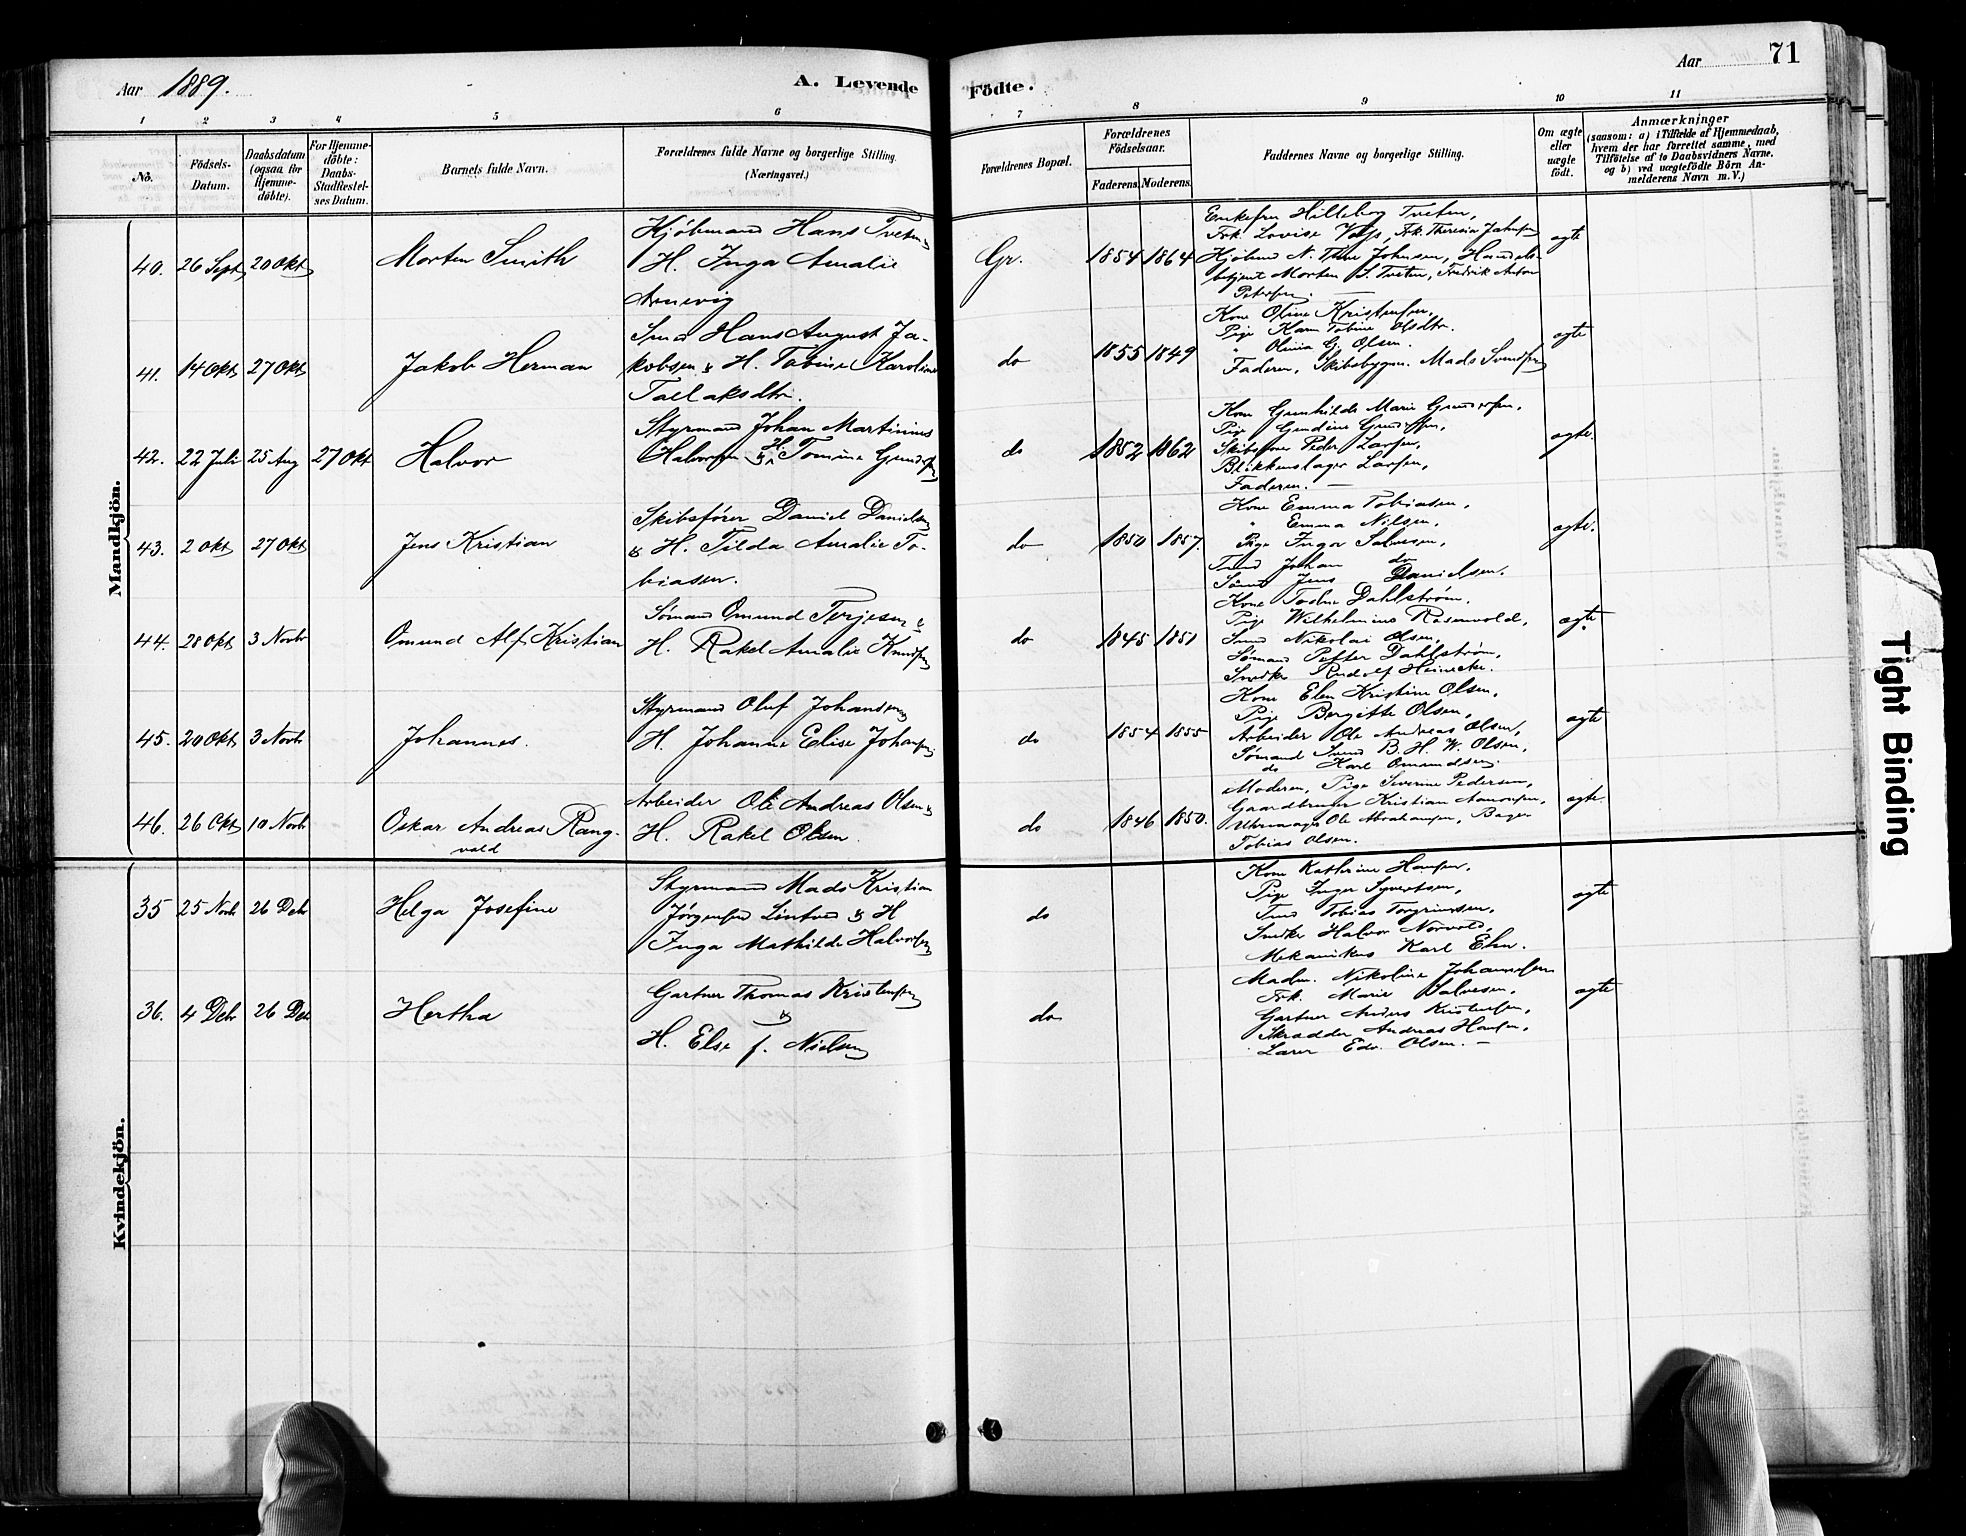 Aar 1889.
A. Levende
Födte.
Aar
71
1
2
3
4
5
6
7
8
9
10
11
No.
Födsels-Datum.
Daabsdatum (ogsaa for Hjemmedöbte).
For Hjemmedöbte: Daabs-Stadfæstelses Datum.
Barnets fulde Navn.
Forældrenes fulde Navne og borgerlige Stilling.
(Næringsvei.)
Forældrenes Bopæl.
Forældrenes Födselsaar.
Faderens.
Moderens.
Faddernes Navne og borgerlige Stilling.
Om ægte eller uægte födt.
Anmærkninger
(saasom: a) i Tilfælde af Hjemmedaab, hvem der har forrettet samme, med Tilföielse af to Daabsvidners Navne, og b) ved uægtefödte Börn Anmelderens Navn m. V.)
Mandkjön.
40. 26 Sept 20 Okt Morten Smith
Kjöbmand Hans Tveten &
H. Inga Amalie
Arnevig
Gr. 1854 1864
Enkefru Hilleborg Tveten,
Frk. Lovise, Frk. Theresia
Kjöbmd N. Johnsen, Handels-
betjent Morten S. Tveten, Fredrik Anton
Petersen.
ægte
41. 14 Okt 27 Okt Jakob Herman
Smed Hans August Ja-
kobsen & H. Tobine Karoline
Tallaksdtr.
do 1855 1849
Kone Oline Kristensen,
Pige Karen Tobine Olsdtr.
" Olinia G. Olsen.
Faderen, Skibsbygm. Mads Svendsen
ægte
42. 22 Juli 25 Aug 27 Okt Halvor
Styrmand Johan Martinius
Halvorsen & H. Tomine Gundersen
do 1852 1862
Kone Gunhilde Marie Gundersen,
Pige Gundersen,
Skibsförer Peder Larsen,
Blikkenslager Larsen,
Faderen. —
ægte.
43. 2 Okt 27 Okt Jens Kristian
Skibsförer Daniel Danielsen
& H. Tilda Amalie To-
biasen.
do 1850 1857.
Kone Emma Tobiasen,
" Emma Nilsen,
Pige Inga Salvesen,
Johan do
Sömd Jens Danielsen.
ægte.
44. 28 Okt 3 Novbr Omund Alf Kristian
Sömand Omund Terjesen &
H. Rakel Amalie Knudsen
do 1845 1851
Kone Dahlström,
Pige Wilhelmine Rosenvold,
Smd Nikolai Olsen,
Sömand Petter Dahlström,
Snedker Rudolf Heinecke.
ægte
45. 20 Okt 3 Novbr Johannes.
Styrmand Oluf Johansen
H. Johanne Elise Johansen
do 1854 1855
Kone Elen Kristine Olsen,
Pige Bergitte Olsen,
Arbeider Ole Andreas Olsen,
Sömand Svend B. H. W. Olsen,
do Karl Omundsen.
ægte
46. 26 Okt 10 Novbr Oskar Andreas Rang-
vald
Arbeider Ole Andreas Olsen &
H. Rakel Olsen.
do 1846 1850.
Moderen, Pige Severine Pedersen,
Gaardbruger Kristian,
Uhrmager Ole Abrahamsen, Bager
Tobias Olsen.
ægte.
Kvindekjön.
35 25 Novbr 26 Debr Helga Josefine
Styrmand Mads Kristian
Jörgensen Lintved & H
Inga Mathilde Halvorsen
do
Kone Kathrine Hansen,
Pige Inger Syvertsen,
Tobias Torgrimsen,
Snedker Halvor Norvold,
Mekanikus Karl.
ægte
36. 4 Debr 26 Debr Hertha
Gartner Thomas Kristensen
&
H. Else f. Nielsen
do
Madm. Nikoline Johannesen
Frk. Marie Salvesen,
Gartner Anders Kristensen,
Skrædder Andreas Hansen,
Lærer Edv. Olsen. —
ægte
Tight Binding